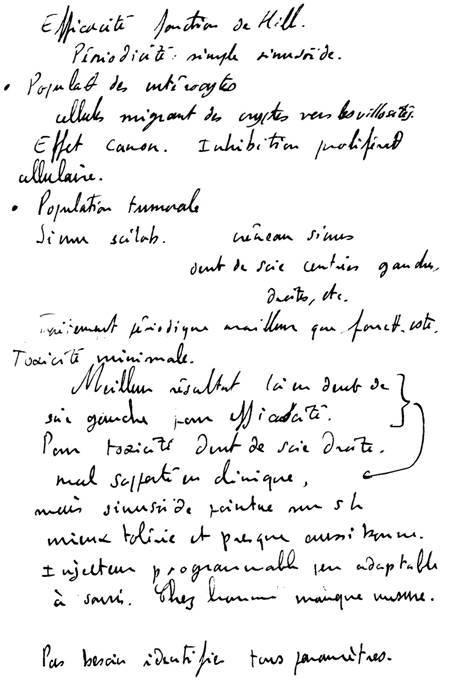 Efficacité fonction de Hill.
Périodicité: simple sinusoïde.
• Populat° des entérocytes
cellules migrant des cryptes vers les villosités.
Effet canon. Inhibition proliférat°
cellulaire.
• Population tumorale
Simu scilab. créneau sinus
dent de scie centrées gauches,
droites, etc.
Traitement périodique meilleur que fonct. cste.
Toxicité minimale.
Meilleur résultat loi en dent de
scie gauche pour efficacité.
Pour toxicité dent de scie droite.
mal supporté en clinique,
mais sinusoïde pointue sur 5 h
mieux tolérée et presque aussi bonne.
Injecteur programmable peu adaptable
à souris. Chez homme manque mesure.
Pas besoin identifier tous paramètres.